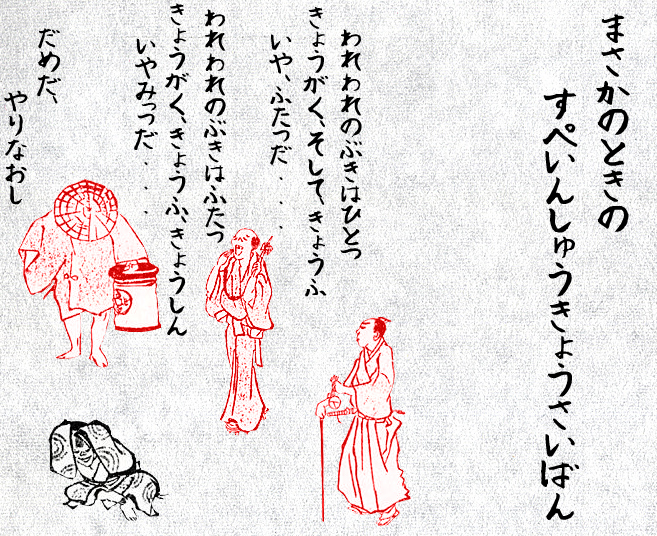 まさかのときの
すぺいんしゅうきょうさいばん
われわれのぶきはひとつ
きょうがく、そして、きょうふ
いや、ふたつだ・・・
われわれのぶきはふたつ
きょうがく、きょうふ、きょうしん
いやみっつだ・・・
だめだ、
やりなおし